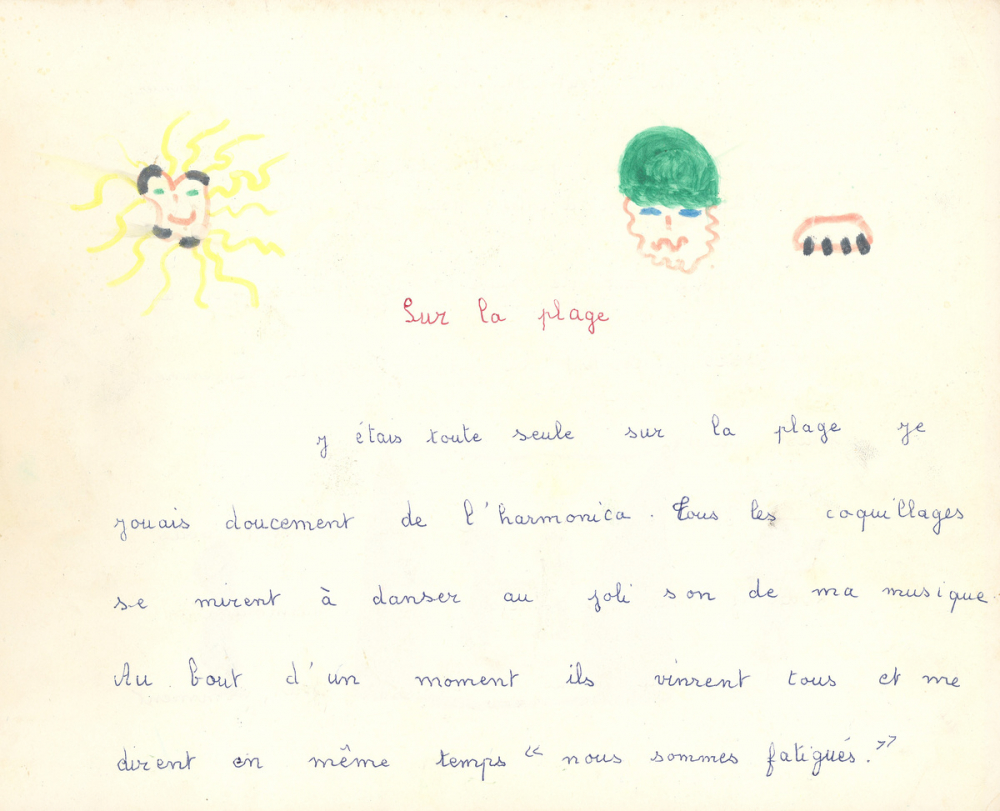 Sur la plage
j étais toute seule sur la plage je
jouais doucement de l'harmonica. Tous les coquillages
se mirent à danser au joli son de ma musique.
Au bout d'un moment ils vinrent tous et me
dirent en même temps « nous sommes fatigués. »